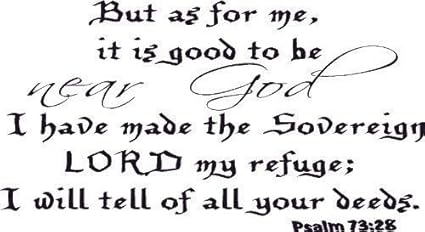 But as for me,
it is good to be
near God
I have made the Sovereign
LORD my refuge;
I will tell of all your deeds.
Psalm 73:28